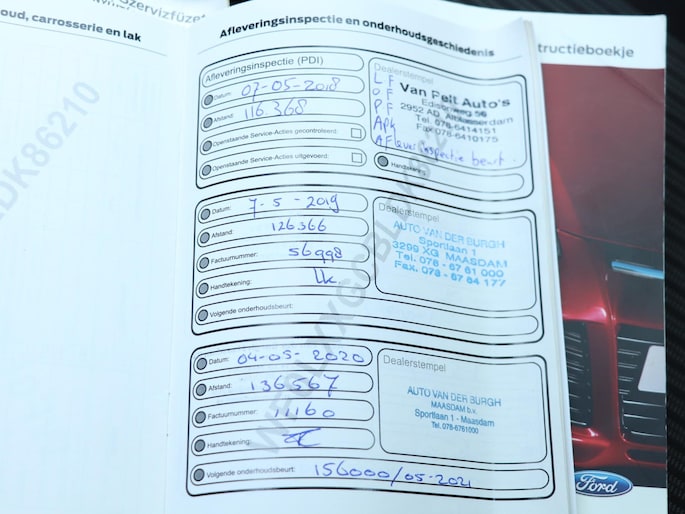 oud, carrosserie en lak
Szervizfüzet
Afleveringsinspectie en onderhoudsgeschiedenis
Afleveringsinspectie (PDI)
Datum: 07-05-2018
Afstand: 116368
Openstaande Service-Acties gecontroleerd:
Openstaande Service-Acties uitgevoerd:
Dealerstempel
LF
OF
PF
Apk
Afleverinspectie beurt.
Van Pelt Auto's
Edisonweg 50
2952 AD Alblasserdam
Tel. 078-6414151
Fax 078-6410175
Handtekening:
Datum: 7-5-2019
Afstand: 126366
Factuurnummer: 56998
Handtekening:
Volgende onderhoudsbeurt:
Dealerstempel
AUTO VAN DER BURGH
Sportlaan 1
3299 XG MAASDAM
Tel. 078 - 67 61 000
Fax. 078 - 67 64 177
Datum: 04-05-2020
Afstand: 136567
Factuurnummer: 11160
Handtekening:
Volgende onderhoudsbeurt: 156000/05-2021
Dealerstempel
AUTO VAN DER BURGH
MAASDAM b.v.
Sportlaan 1 - Maasdam
Tel. 078-6761000
tructieboekje
Ford
DK86210